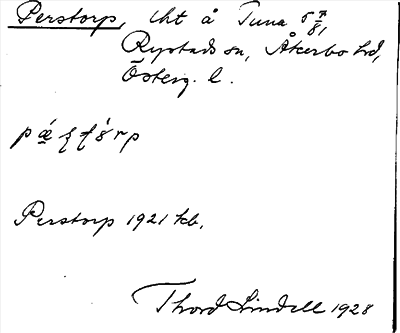 Perstorp, lht å Tuna 5 7/8,
Rystads sn, Åkerbo hd,
Österg. l.
Perstorp 1921 kb.
Thord Lindell 1928